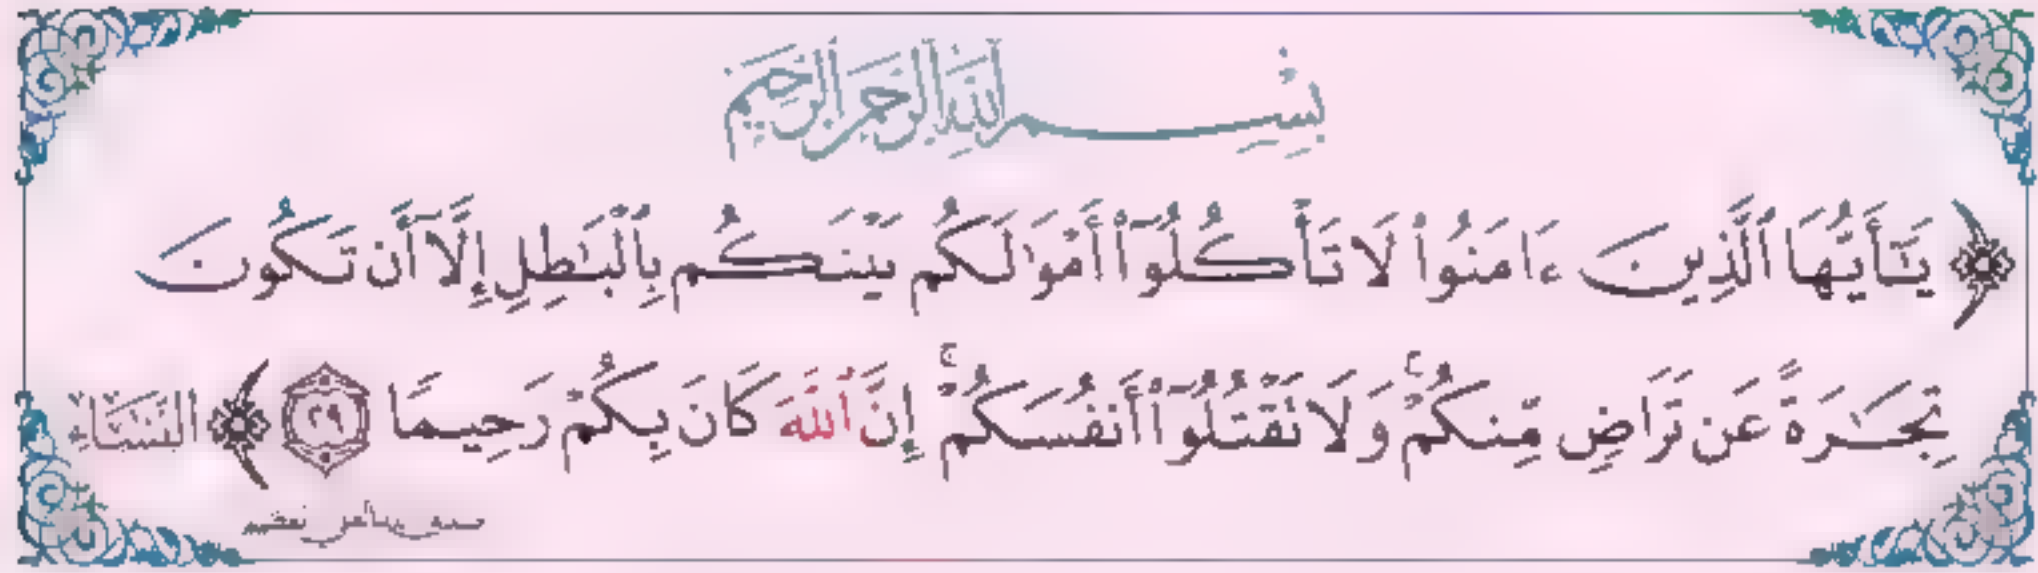 بِسْمِ اللَّهِ الرَّحْمَٰنِ الرَّحِيمِ
﴿ يَـٰٓأَيُّهَا ٱلَّذِينَ ءَامَنُوا۟ لَا تَأْكُلُوٓا۟ أَمْوَٰلَكُم بَيْنَكُم بِٱلْبَـٰطِلِ إِلَّآ أَن تَكُونَ
تِجَـٰرَةً عَن تَرَاضٍ مِّنكُمْ ۚ وَلَا تَقْتُلُوٓا۟ أَنفُسَكُمْ ۚ إِنَّ ٱللَّهَ كَانَ بِكُمْ رَحِيمًا ٢٩ ﴾ النِّسَاء